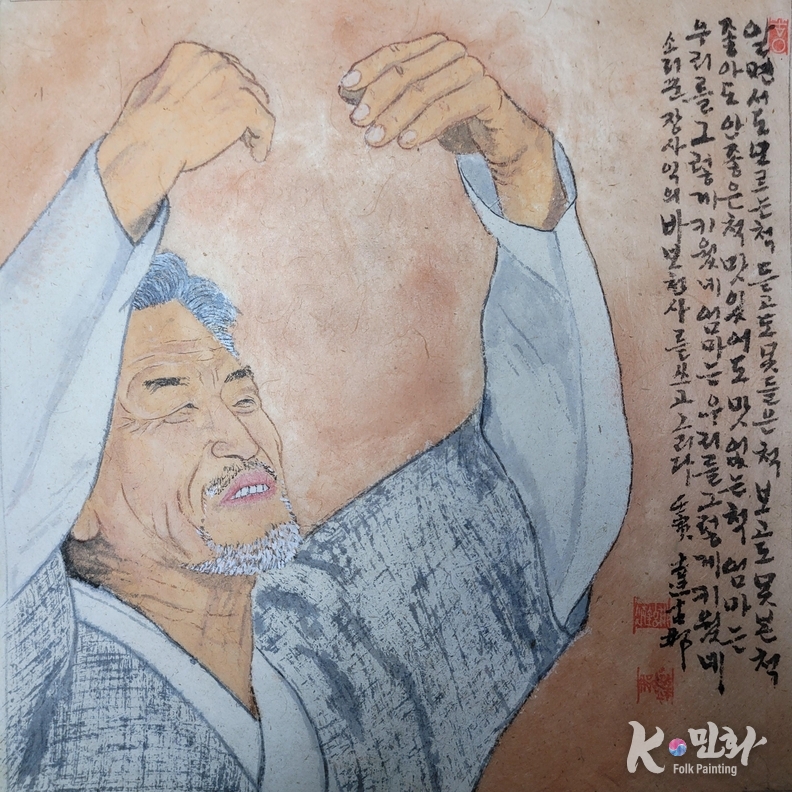 알면서도 모르는척 듣고도 못들은 척 보고도 못본 척
좋아도 안좋은척 맛있어도 맛없는척 엄마는
우리를 그렇게 키웠네 엄마는 우리를 그렇게 키웠네
소리꾼 장사익의 바보천사를 쓰고 그리다 壬寅
K민화
Folk Painting